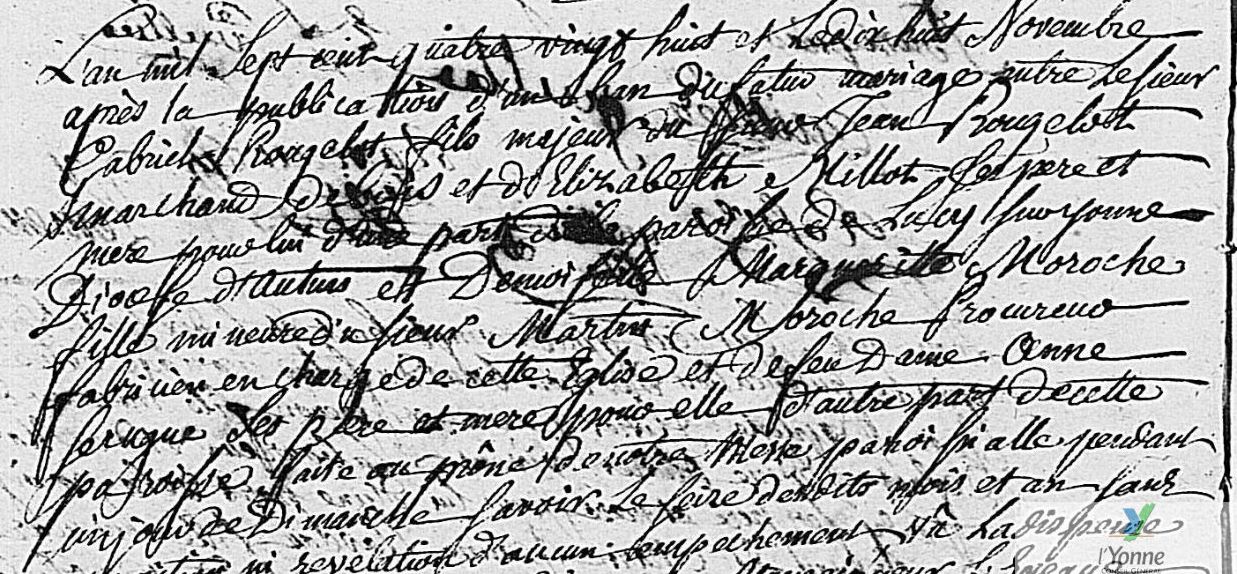 L'an mil Sept cent quatre vingt huit et Le dix huit Novembre
après la publication d'un ban du futur mariage entre Le sieur
Gabriel Rougelot fils majeur du sieur Jean Rougelot
marchand de bois et d'Elizabesth Millot Ses père et
mere pour lui d'une part de la paroisse de Lucy sur yonne
Diocesse d'autun et Demoiselle Marguerite Moroche
fille mineure du sieur Martin Moroche Procureur
fabricien en charge de cette Eglise et de feu Dame Anne
Ses Père et mere pour elle d'autre part de cette
paroisse, faite au prône de notre Messe paroissialle pendant
un jour de Dimanche Savoir Le seize desdits mois et an sans
ni revelation d'aucun empechement Vû La dispense
l'Yonne
CONSEIL GÉNÉRAL